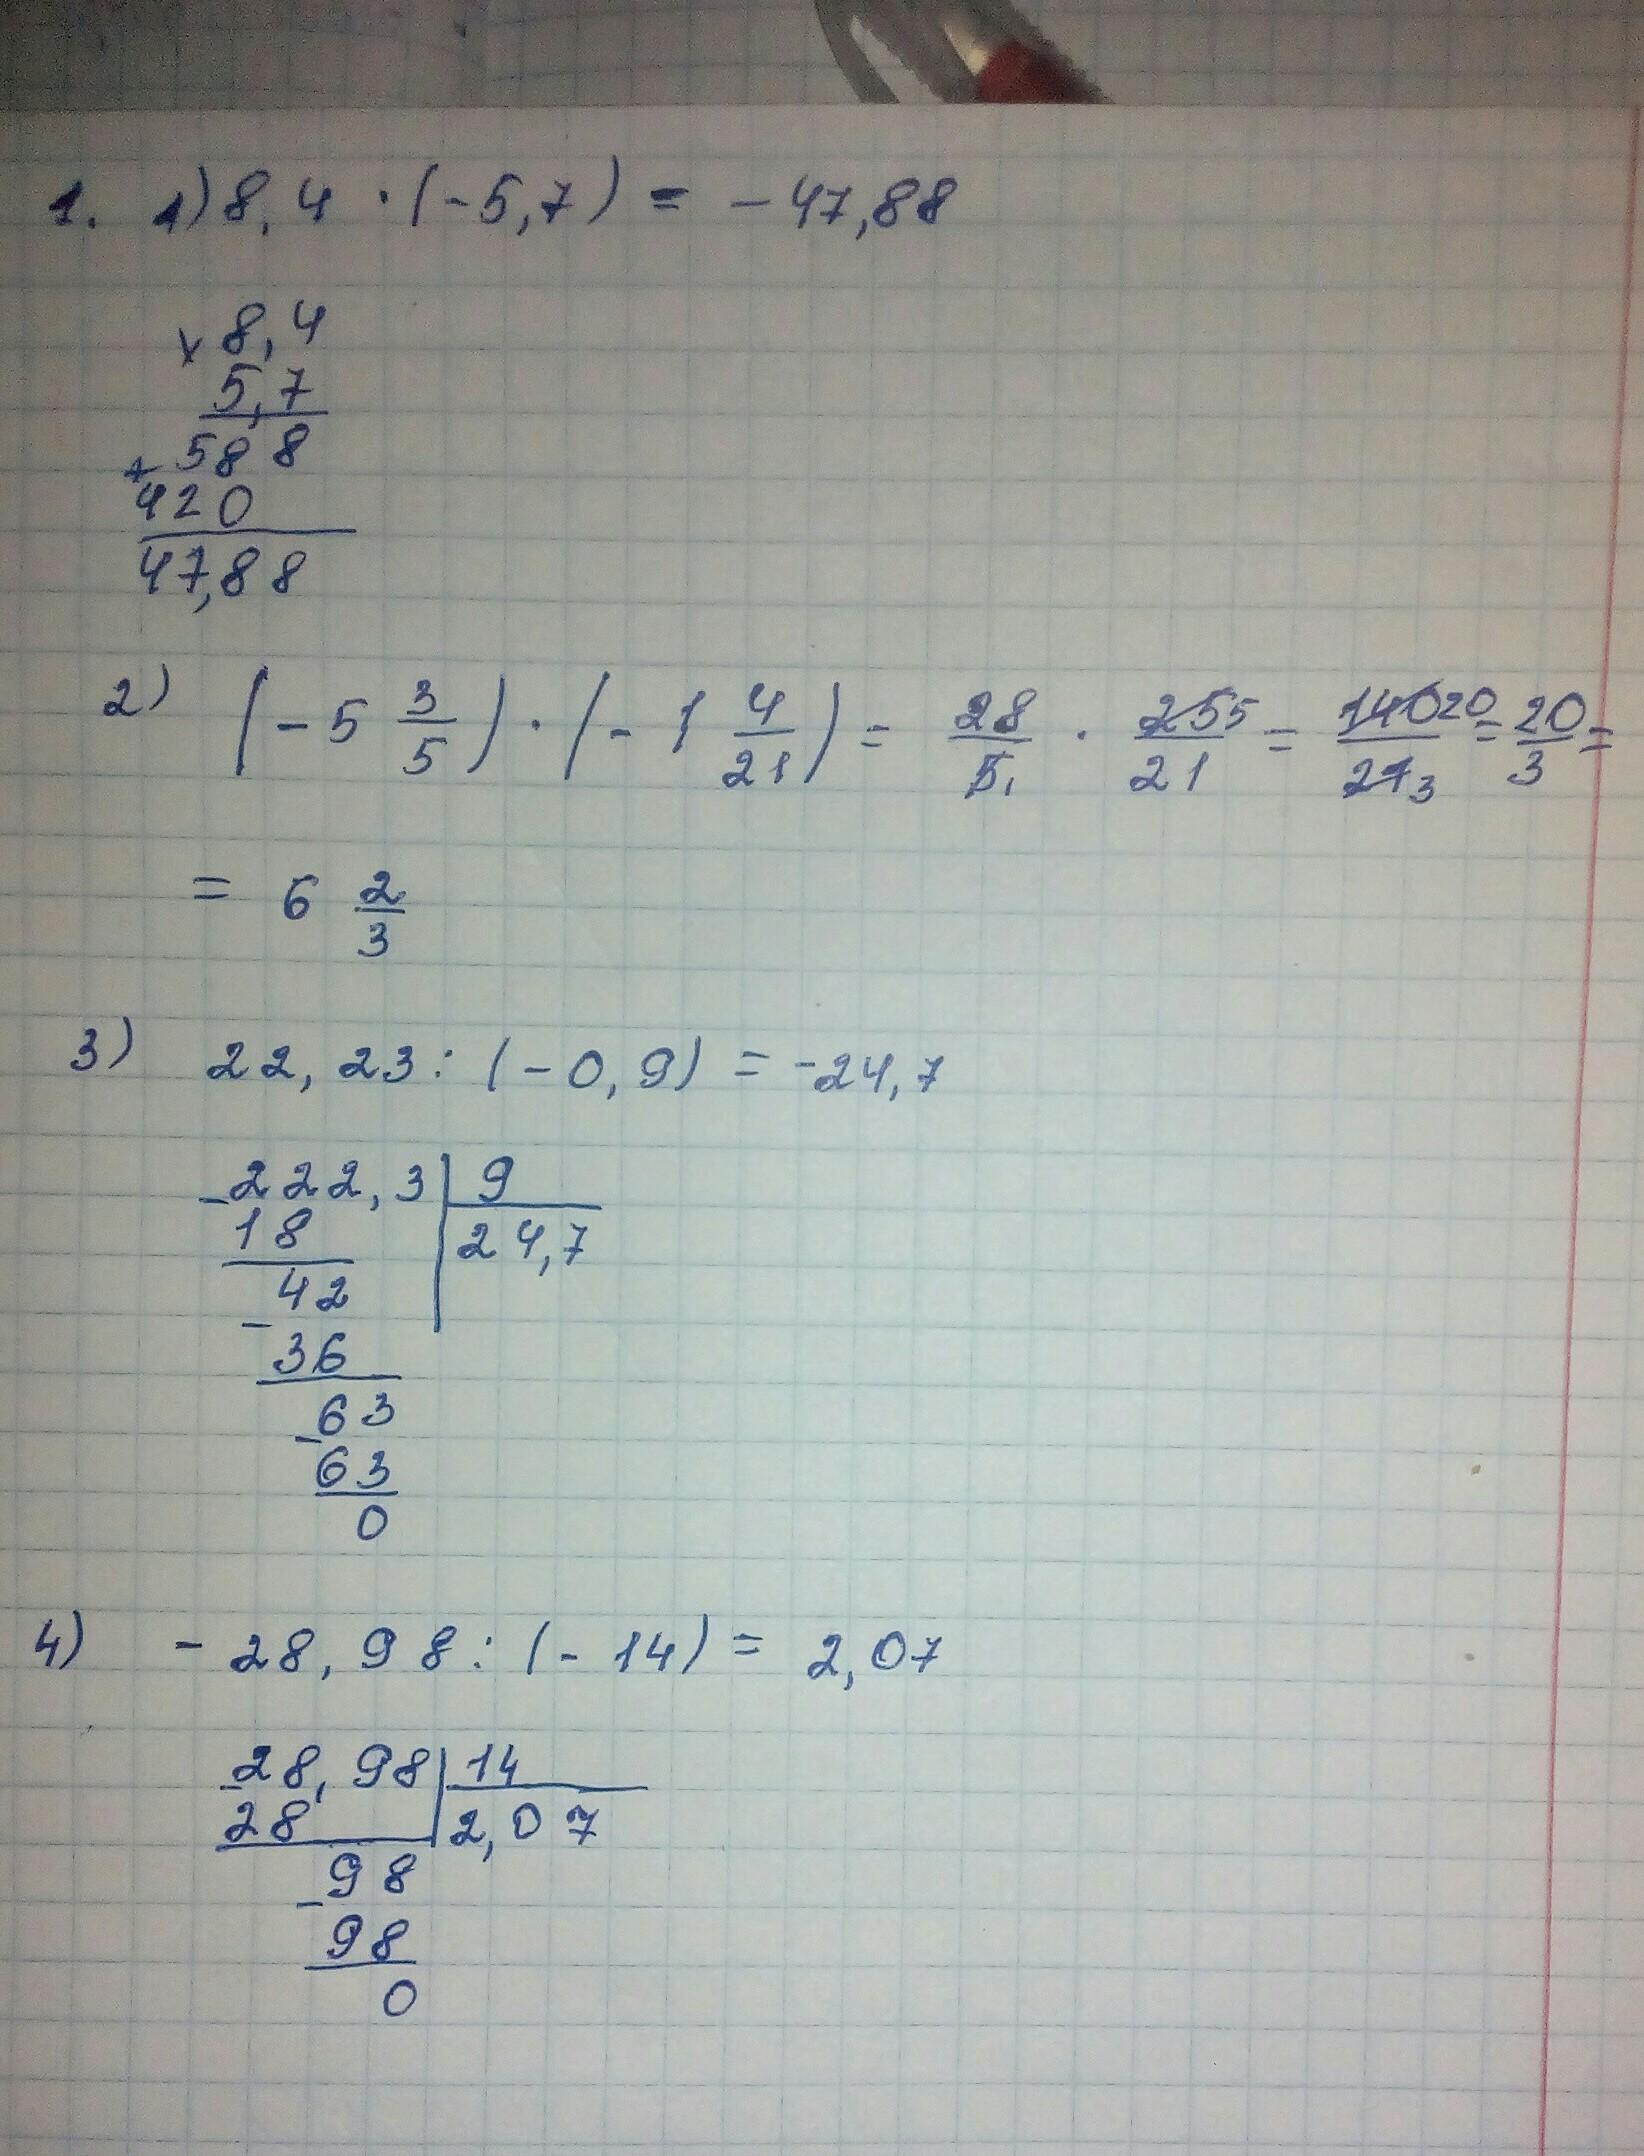 1. 1) 8,4 · (-5,7) = -47,88
× 8,4
5,7
+ 588
420
47,88
2) (-5 3/5) · (-1 4/21) = 28/5 1 · 25 5/21 = 140 20/21 3 = 20/3 =
= 6 2/3
3) 22,23 : (-0,9) = -24,7
- 222,3 | 9
18 | 24,7
42
-
36
63
-
63
0
4) -28,98 : (-14) = 2,07
- 28,98 | 14
28 | 2,07
98
-
98
0